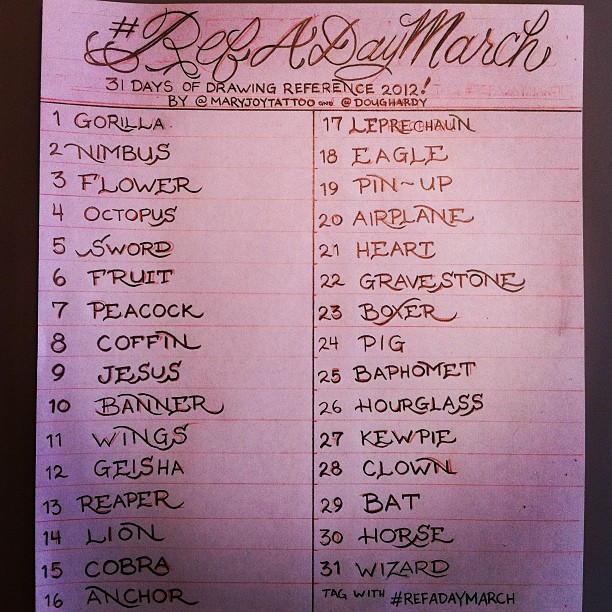 #RefADayMarch
31 DAYS OF DRAWING REFERENCE 2012!
BY @MARYJOYTATTOO AND @DOUGHARDY
1 GORILLA
2 NIMBUS
3 FLOWER
4 OCTOPUS
5 SWORD
6 FRUIT
7 PEACOCK
8 COFFIN
9 JESUS
10 BANNER
11 WINGS
12 GEISHA
13 REAPER
14 LION
15 COBRA
16 ANCHOR
17 LEPRECHAUN
18 EAGLE
19 PIN-UP
20 AIRPLANE
21 HEART
22 GRAVESTONE
23 BOXER
24 PIG
25 BAPHOMET
26 HOURGLASS
27 KEWPIE
28 CLOWN
29 BAT
30 HORSE
31 WIZARD
TAG WITH #REFADAYMARCH